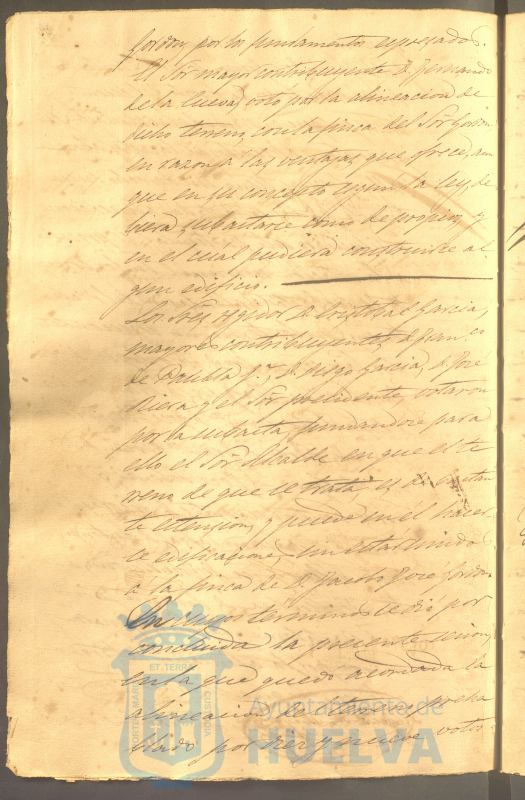 Jordon, por los fundamentos espresados.
El Sor. mayor contribuyente D. Fernando
de la Cueva, votó por la alineacion de
dicho terreno, con la finca del Sor. Gordon
en razon a las ventajas que ofrece, aun
que en su concepto segun la ley, de
biera subastarse como de propios, y
en el cual pudiera construirse al
gun edificio.
Los Sres. regidor D. Cristobal Garcia,
mayores contribuyentes, D. Juan
de D. Diego Garcia, D. José
Riera y el Sor. presidente, votaron
por la subasta, fundandose para
ello el Sor. Alcalde en que el te
rreno de que se trata, es de bastan
te estension, y puede en el hacer
se edificaciones, sin estar unido
á la finca de D. Jacobo José Gordon
En cuyos terminos se dió por
concluida la presente sesion,
en la que quedó acordada la
alineacion de
por diez y nueve votos
PORTUS MARIS
ET TERRÆ
CUSTODIA
Ayuntamiento de
HUELVA